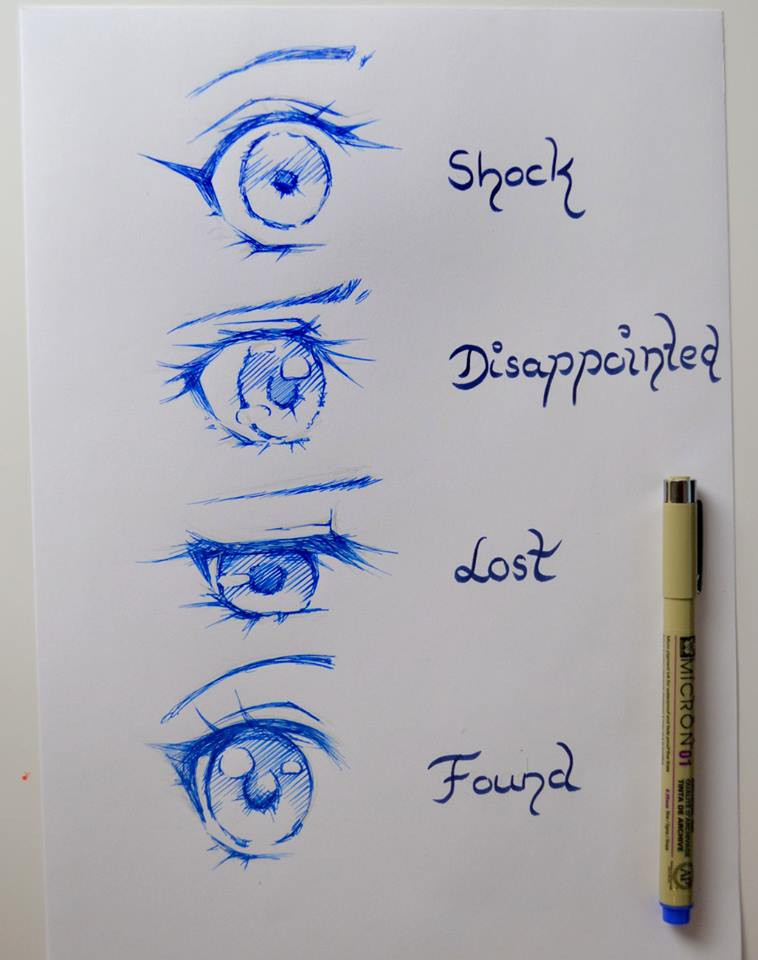 Shock
Disappointed
Lost
Found
MICRON 01
TINTA DE ARCHIVE